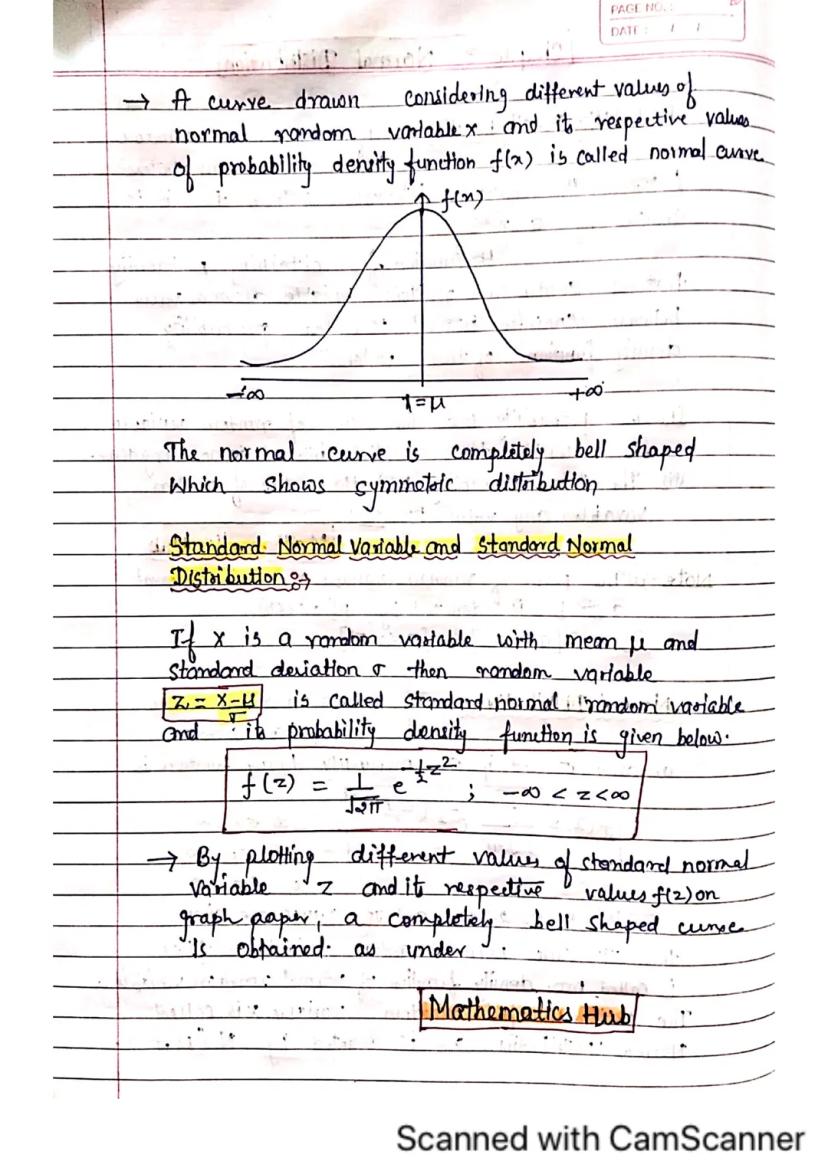 PAGE NO.:
DATE: / /
→ A curve drawn considering different values of
normal random variable x and its respective values
of probability density function f(x) is called normal curve
f(x)
-∞ 1=μ +∞
The normal curve is completely bell shaped
Which shows symmetric distribution
Standard Normal Variable and Standard Normal
Distribution :→
If x is a random variable with mean μ and
standard deviation σ then random variable
z = x-μ/σ is called standard normal random variable
and its probability density function is given below.
f(z) = 1/√2π e^-½z² ; -∞ < z < ∞
→ By plotting different values of standard normal
variable z and its respective values f(z) on
graph paper, a completely bell shaped curve
is obtained as under
Mathematics Hub
Scanned with CamScanner